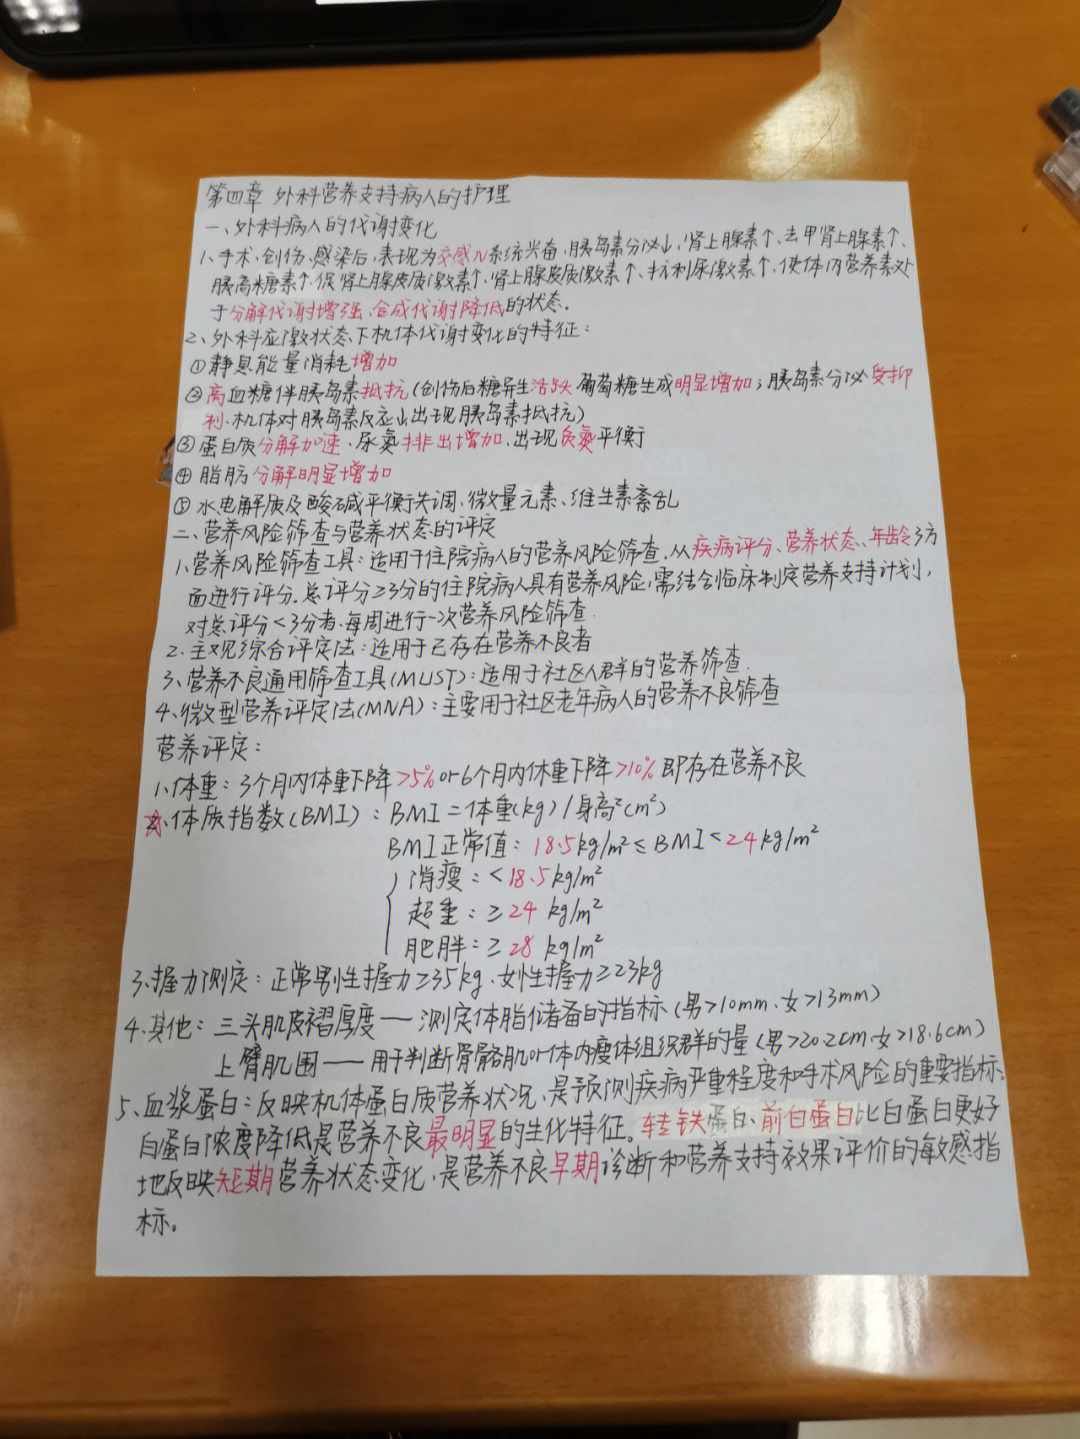 第四章 外科营养支持病人的护理
一、外科病人的代谢变化
1、手术、创伤、感染后,表现为交感N系统兴奋,胰岛素分泌↓,肾上腺素↑、去甲肾上腺素↑、
胰高糖素↑、促肾上腺皮质激素↑、肾上腺皮质激素↑、抗利尿激素↑,使体内营养素处
于分解代谢增强、合成代谢降低的状态。
2、外科应激状态下机体代谢变化的特征:
①静息能量消耗增加
②高血糖伴胰岛素抵抗(创伤后糖异生活跃 葡萄糖生成明显增加;胰岛素分泌受抑
制、机体对胰岛素反应↓出现胰岛素抵抗)
③蛋白质分解加速、尿氮排出增加,出现负氮平衡
④脂肪分解明显增加
⑤水电解质及酸碱平衡失调、微量元素、维生素紊乱
二、营养风险筛查与营养状态的评定
1、营养风险筛查工具:适用于住院病人的营养风险筛查,从疾病评分、营养状态、年龄3方
面进行评分。总评分≥3分的住院病人具有营养风险,需结合临床制定营养支持计划,
对总评分<3分者,每周进行一次营养风险筛查.
2、主观综合评定法:适用于已存在营养不良者
3、营养不良通用筛查工具(MUST):适用于社区人群的营养筛查.
4、微型营养评定法(MNA):主要用于社区老年病人的营养不良筛查
营养评定:
1、体重:3个月内体重下降>5% or 6个月内体重下降>10% 即存在营养不良
2、体质指数(BMI):BMI=体重(kg)/身高²(cm²)
BMI正常值:18.5kg/m²≤BMI<24kg/m²
消瘦:<18.5kg/m²
超重:≥24 kg/m²
肥胖:≥28 kg/m²
3、握力测定:正常男性握力≥35kg、女性握力≥23kg
4、其他:三头肌皮褶厚度—测定体脂储备的指标(男>10mm、女>13mm)
上臂肌围—用于判断骨骼肌or体内瘦体组织群的量(男>20.2cm、女>18.6cm)
5、血浆蛋白:反映机体蛋白质营养状况,是预测疾病严重程度和手术风险的重要指标。
白蛋白浓度降低是营养不良最明显的生化特征。转铁蛋白、前白蛋白比白蛋白更好
地反映短期营养状态变化,是营养不良早期诊断和营养支持效果评价的敏感指
标。